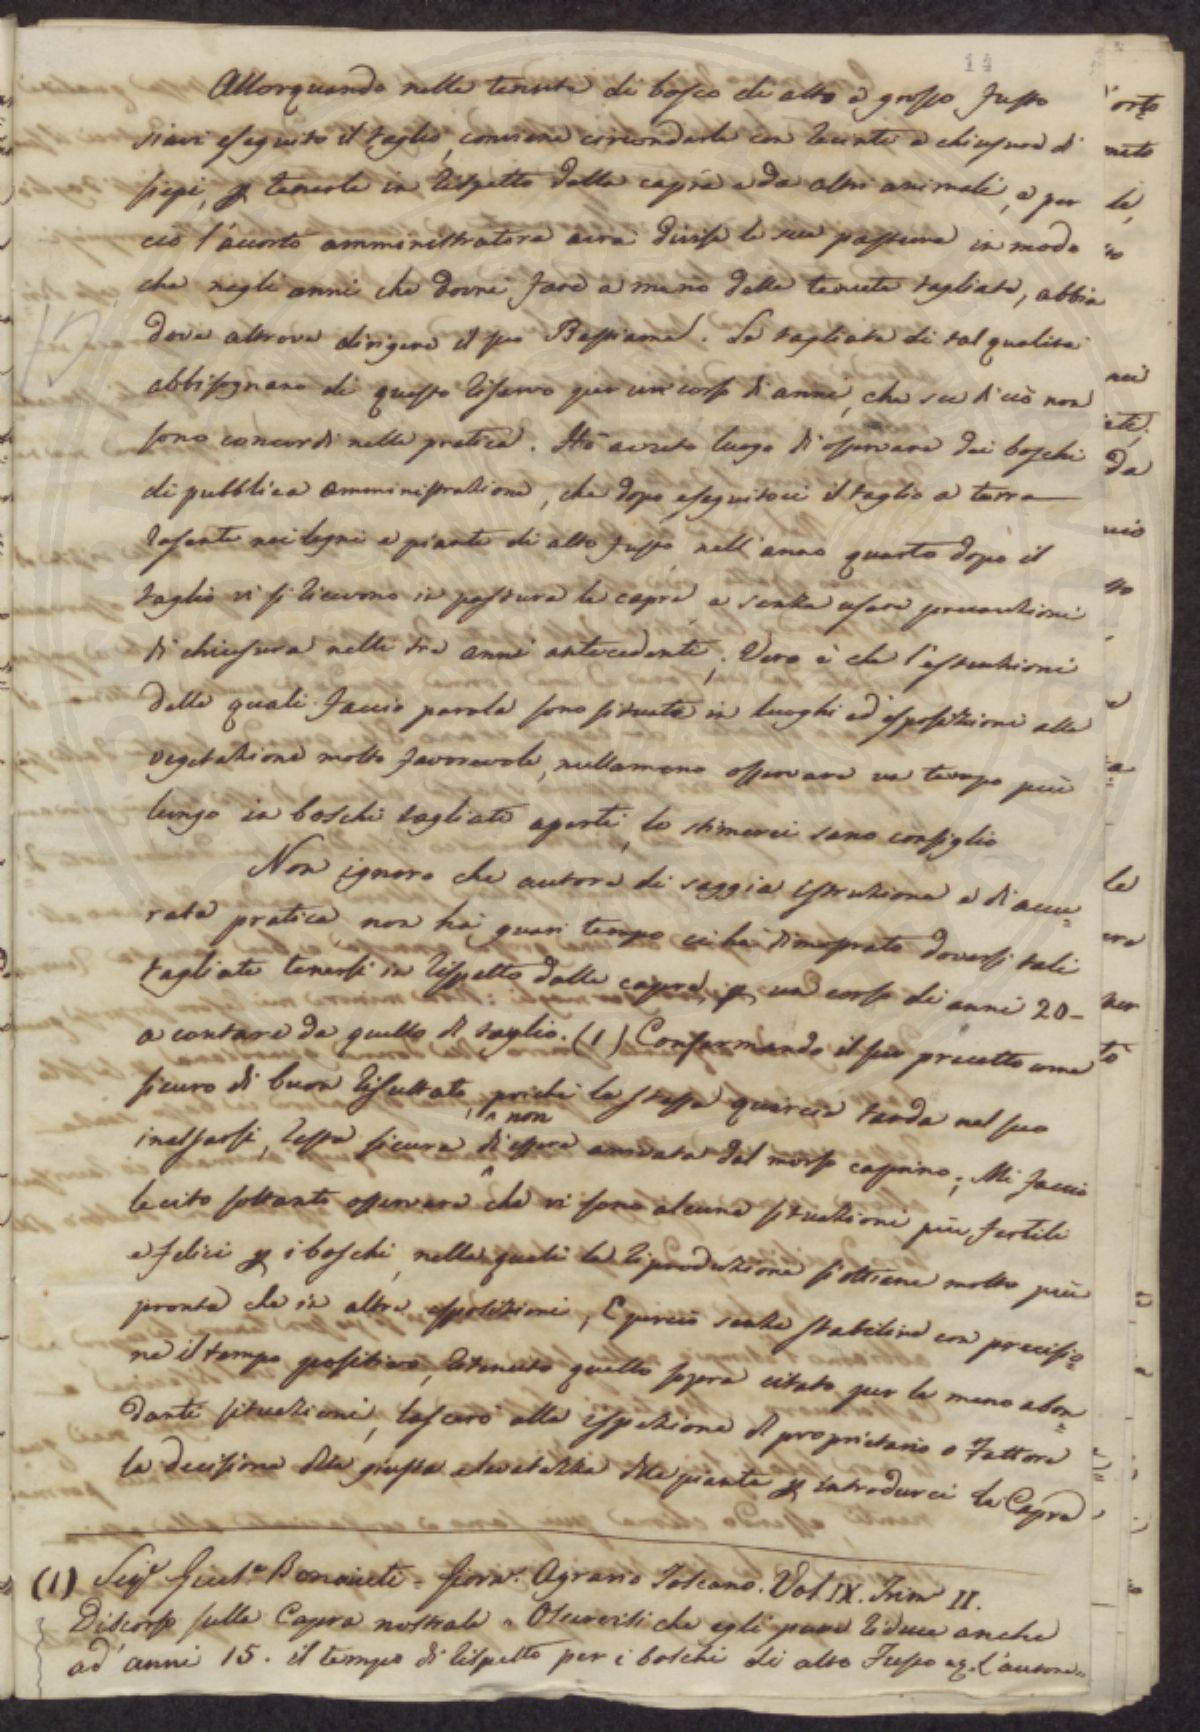 14
Allorquando nelle tenute di bosco di alto e grosso fusto
siavi eseguito il taglio, conviene circondarle con recinti e chiusure di
siepi, p tenerle in rispetto dalle capre e da altri animali, e per
ciò l'accorto amministratore avrà divise le sue pasture in modo
che negli anni che dovrà fare a meno delle tenute tagliate, abbia
dove altrove dirigere il suo Bestiame. Le tagliate di tal qualità
abbisognano di questo riservo per un corso di anni, che su di ciò non
sono concordi nella pratica. Hò avuto luogo di osservare dei boschi
di pubblica amministrazione, che dopo eseguitoci il taglio a terra
rasente nei legni e piante di alto fusto, nell'anno quarto dopo il
taglio vi si ricevono in pastura le capre, e senza usare precauzioni
di chiusura nelli tre anni antecedenti. Vero è che l'estensioni
delle quali faccio parola sono situate in luoghi ed esposizioni alla
vegetazione molto favorevole, nullameno osservare un tempo più
lungo in boschi tagliati aperti, lo stimerei sano consiglio
Non ignoro che autore di saggia istruzione e di accu=
rata pratica non hà guari tempo ci hà dimostrato doversi tali
tagliate tenersi in rispetto dalle capre, p un corso di anni 20-
a contare da quello di taglio. (1) Confermando il suo precetto come
sicuro di buon resultato, poichè la stessa quercia tarda nel suo
inalzarsi, resta sicura di non essere annodata dal morso caprino; Mi faccio
lecito soltanto osservare che vi sono alcune situazioni più fertili
e felici p i boschi, nelle quali la riproduzione s'ottiene molto più
pronta che in altre esposizioni, E perciò senza stabilire con precisio=
ne il tempo positivo, ritenuto quello sopra citato per le meno abon=
danti situazioni, lascerò alla ispezione d proprietario o Fattore
la decisione della giusta elevatezza delle piante p introdurci le Capre
(1) Sigr Giulo Bonaiuti - Giorn. Agrario Toscano. Vol. IX. Trim. II.
Discorso sulla Capra nostrale - Osservisi che egli pure riduce anche
ad anni 15. il tempo di rispetto per i boschi di alto Fusto